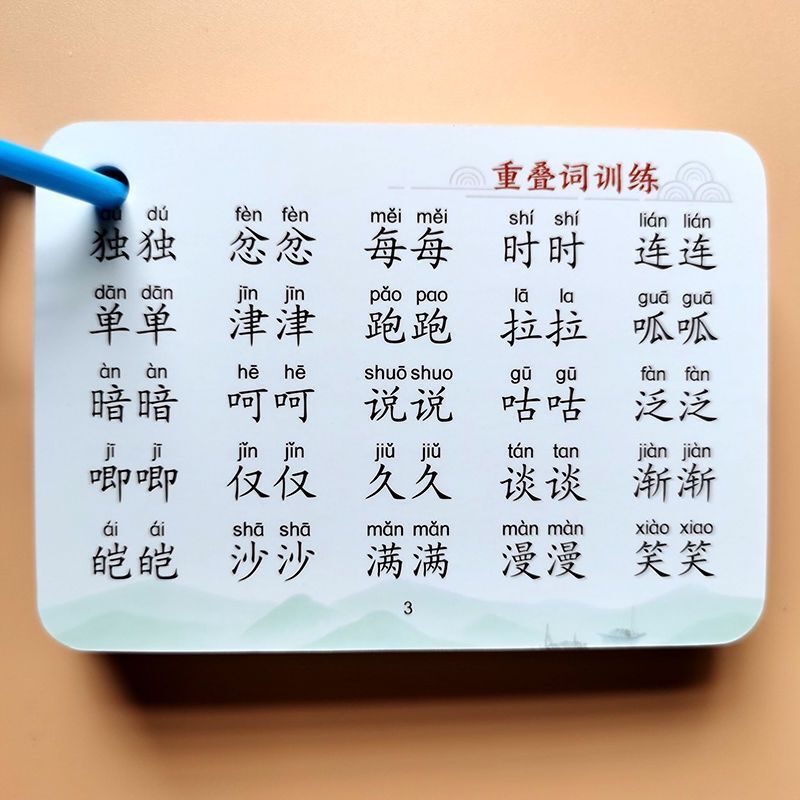 重叠词训练
dú dú fèn fèn měi měi shí shí lián lián
独独 忿忿 每每 时时 连连
dān dān jīn jīn pǎo pao lā la guā guā
单单 津津 跑跑 拉拉 呱呱
àn àn hē hē shuō shuo gū gū fàn fàn
暗暗 呵呵 说说 咕咕 泛泛
jī jī jǐn jǐn jiǔ jiǔ tán tan jiàn jiàn
唧唧 仅仅 久久 谈谈 渐渐
ái ái shā shā mǎn mǎn màn màn xiào xiao
皑皑 沙沙 满满 漫漫 笑笑
3